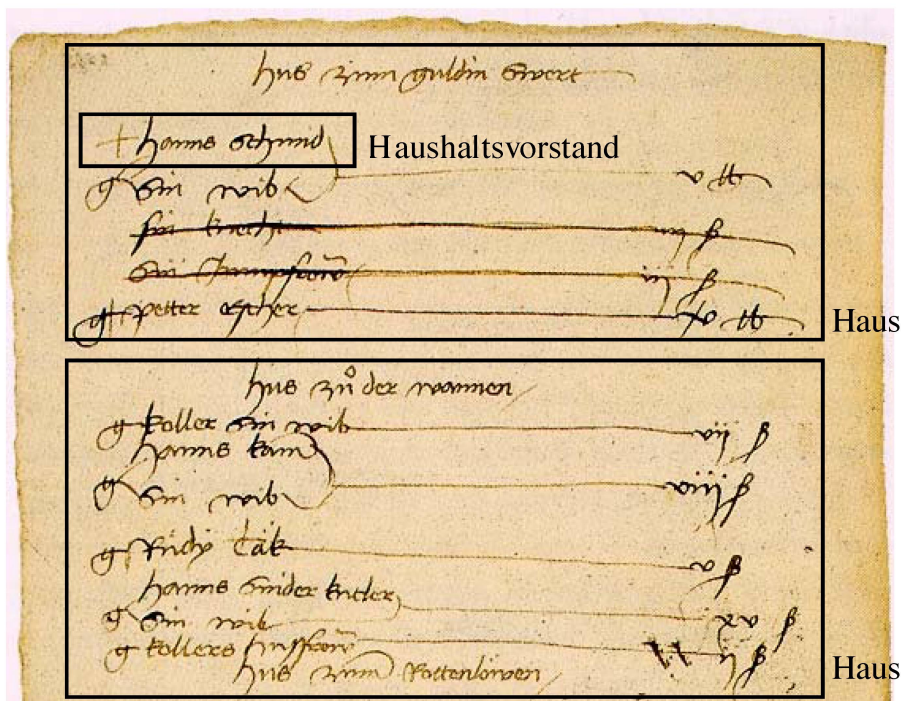 hus zum guldin swert
+ hanns schmid Haushaltsvorstand
g sin wib v lb
sin knecht iiij ß
sin Jumpfrow iij ß
g petter escher xv lb
Haus
hus zů der wannen
g koller sin wib vij ß
hanns
g sin wib viiij ß
g Růdy v ß
hanns sniderknecht
g sin wib xv ß
g kollers husfrow ß
hus zum Rottenlöwen
Haus